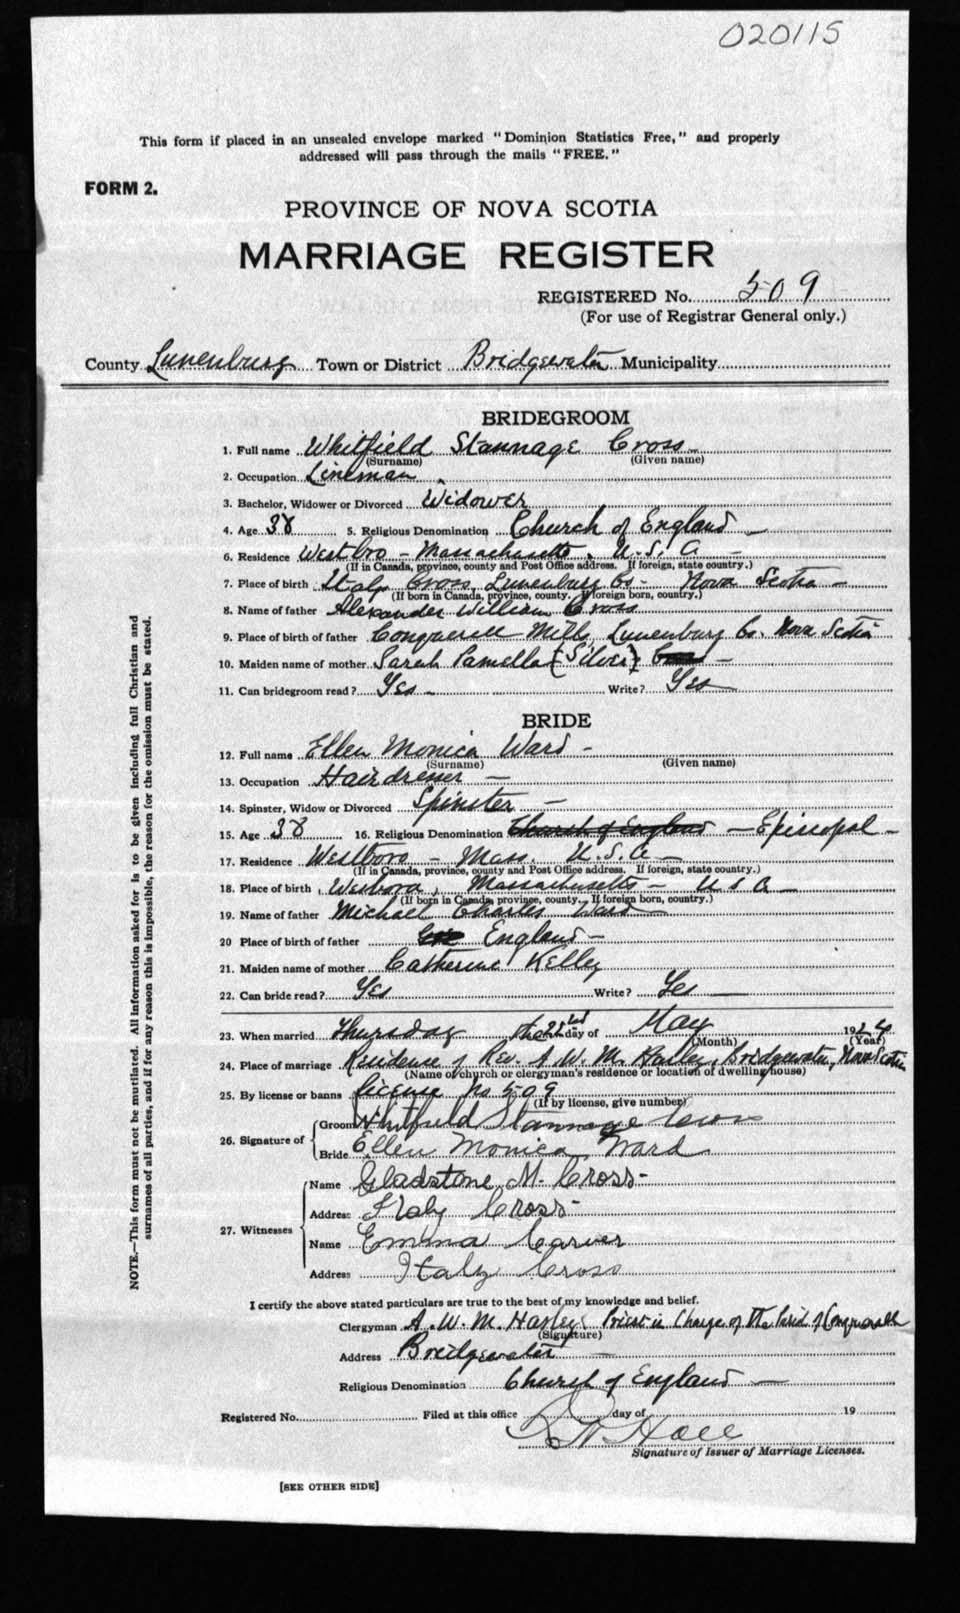 020115
This form if placed in an unsealed envelope marked "Dominion Statistics Free," and properly
addressed will pass through the mails "FREE."
FORM 2.
PROVINCE OF NOVA SCOTIA
MARRIAGE REGISTER
REGISTERED No. 509
(For use of Registrar General only.)
County Lunenburg Town or District Bridgewater Municipality
BRIDEGROOM
1. Full name Whitfield Stannage Cross
(Surname) (Given name)
2. Occupation Lineman
3. Bachelor, Widower or Divorced Widower
4. Age 38 5. Religious Denomination Church of England —
6. Residence Westbro - Massachusetts. U.S.A —
(If in Canada, province, county and Post Office address. If foreign, state country.)
7. Place of birth Italy Cross, Lunenburg Co - Nova Scotia —
(If born in Canada, province, county. If foreign born, country.)
8. Name of father Alexander William Cross
9. Place of birth of father Conquerall Mills, Lunenburg Co. Nova Scotia
10. Maiden name of mother Sarah Pamella (Silver) —
11. Can bridegroom read? Yes - Write? Yes
BRIDE
12. Full name Ellen Monica Ward -
(Surname) (Given name)
13. Occupation Hairdresser —
14. Spinster, Widow or Divorced Spinster —
15. Age 38 16. Religious Denomination Church of England — Episcopal —
17. Residence Westboro - Mass. U.S.A —
(If in Canada, province, county and Post Office address. If foreign, state country.)
18. Place of birth Wesboro, Massachusetts — U S A —
(If born in Canada, province, county. If foreign born, country.)
19. Name of father Michael Charles Ward
20 Place of birth of father England —
21. Maiden name of mother Catherine Kelley
22. Can bride read? Yes Write? Yes —
23. When married Thursday the 22nd day of May 1924
(Month) (Year)
24. Place of marriage Residence of Rev. A. W. M. Harley, Bridgewater, Nova Scotia
(Name of church or clergyman's residence or location of dwelling house)
25. By license or banns license No 509
(If by license, give number)
26. Signature of
Groom Whitfield Stannage Cross
Bride Ellen Monica Ward
27. Witnesses
Name Gladstone M. Cross -
Address Italy Cross -
Name Emma Carver
Address Italy Cross
I certify the above stated particulars are true to the best of my knowledge and belief.
Clergyman A. W. M. Harley Priest in Charge of the Parish of Conquerall
(Signature)
Address Bridgewater —
Religious Denomination Church of England —
Registered No. Filed at this office day of 19
Signature of Issuer of Marriage Licenses.
[SEE OTHER SIDE]
NOTE.—This form must not be mutilated. All information asked for is to be given including full Christian and
surnames of all parties, and if for any reason this is impossible, the reason for the omission must be stated.